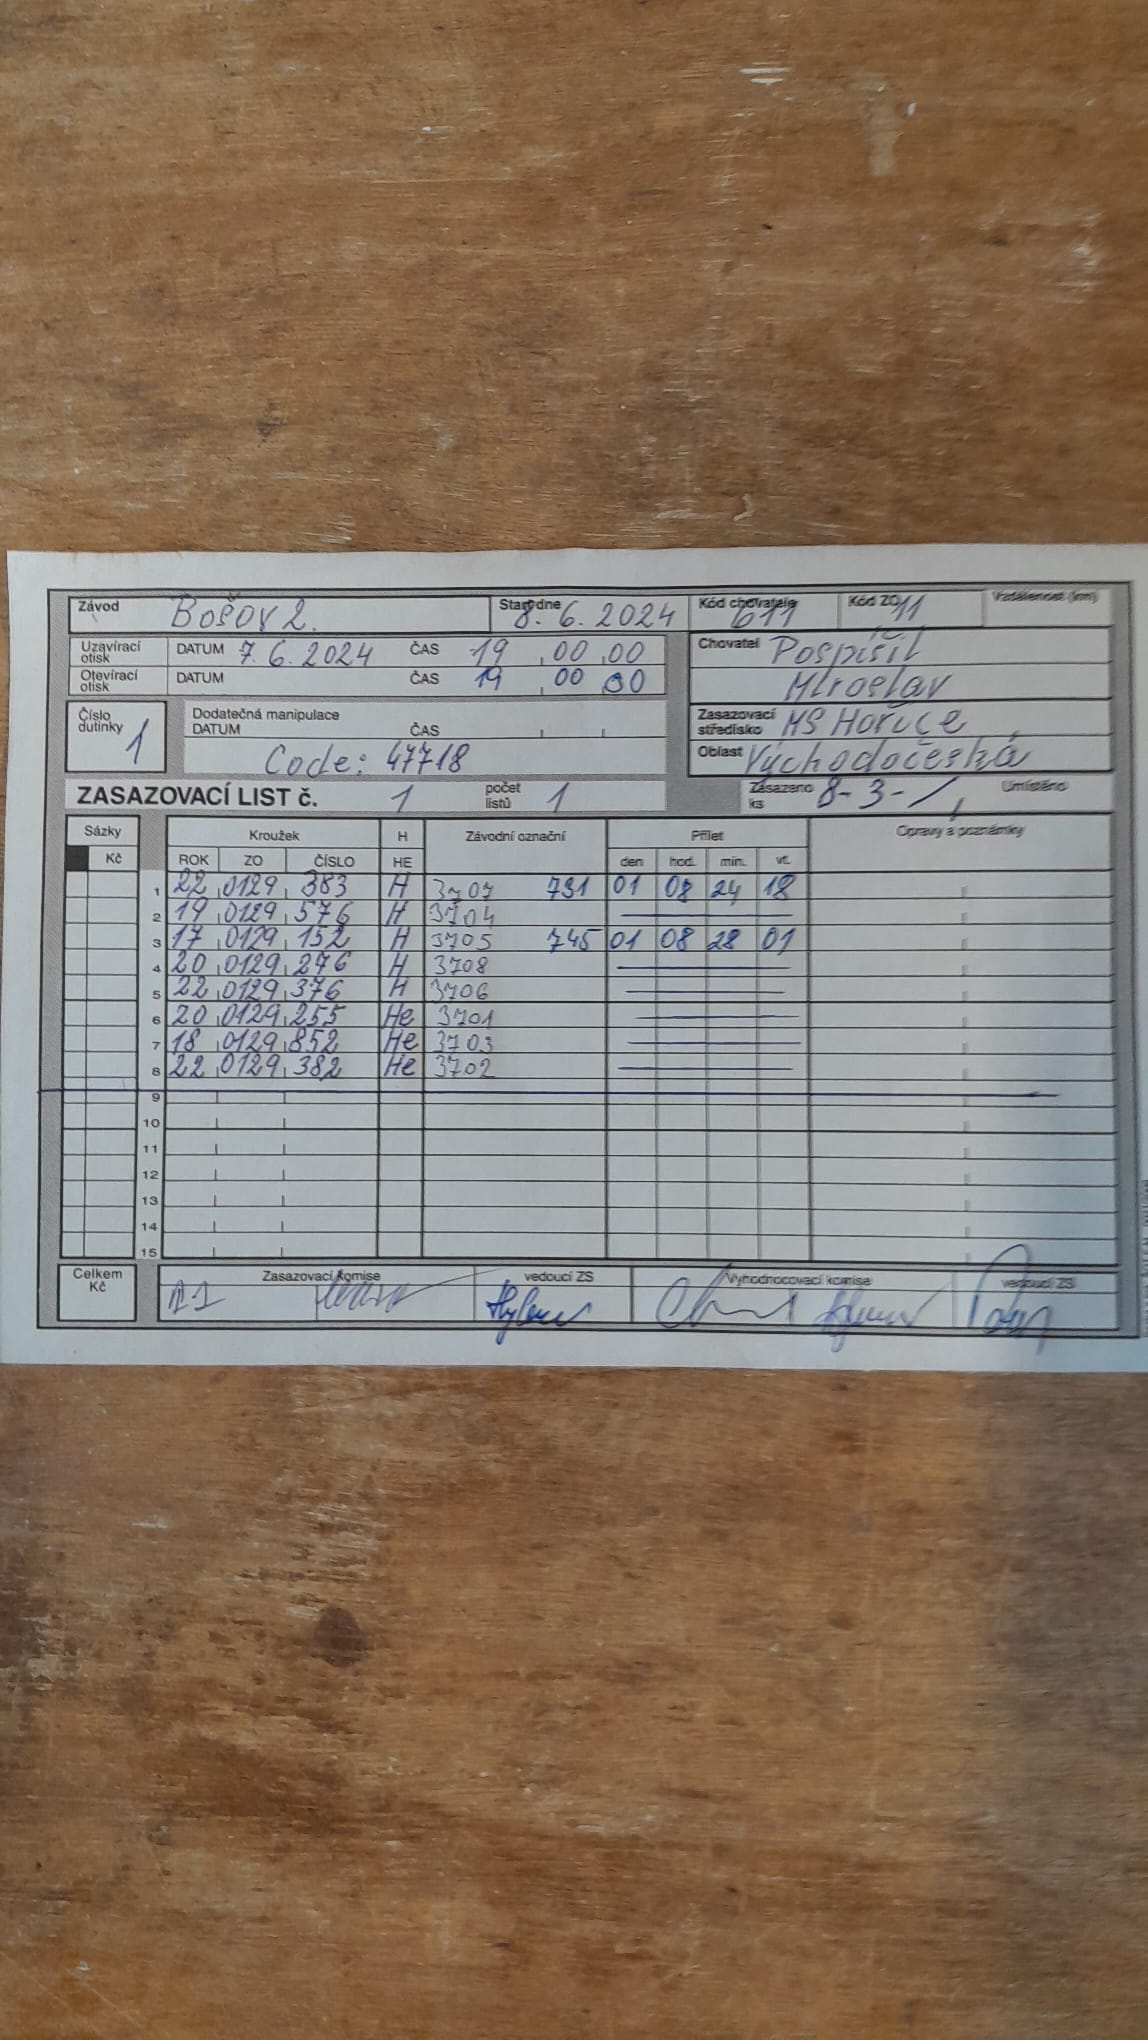 Závod Bošov 2. Start dne 8. 6. 2024 Kód chovatele 611 Kód ZO 11 Vzdálenost (km)
Uzavírací otisk DATUM 7. 6. 2024 ČAS 19 00 00 Chovatel Pospíšil
Otevírací otisk DATUM ČAS 19 00 00 Miroslav
Číslo dutinky 1 Dodatečná manipulace DATUM ČAS Zasazovací středisko MS Hořice
Code: 47718 Oblast Východočeská
ZASAZOVACÍ LIST č. 1 počet listů 1 Zasazeno ks 8-3-1 Umístěno
Sázky Kroužek H Závodní označní Přílet Opravy a poznámky
Kč ROK ZO ČÍSLO HE den hod. min. vt.
1 22 0129 383 H 3707 731 01 08 24 18
2 19 0129 576 H 3704
3 17 0129 152 H 3705 745 01 08 28 01
4 20 0129 276 H 3708
5 22 0129 376 H 3706
6 20 0129 255 He 3701
7 18 0129 852 He 3703
8 22 0129 382 He 3702
9
10
11
12
13
14
15
Celkem Kč Zasazovací komise vedoucí ZS Vyhodnocovací komise vedoucí ZS